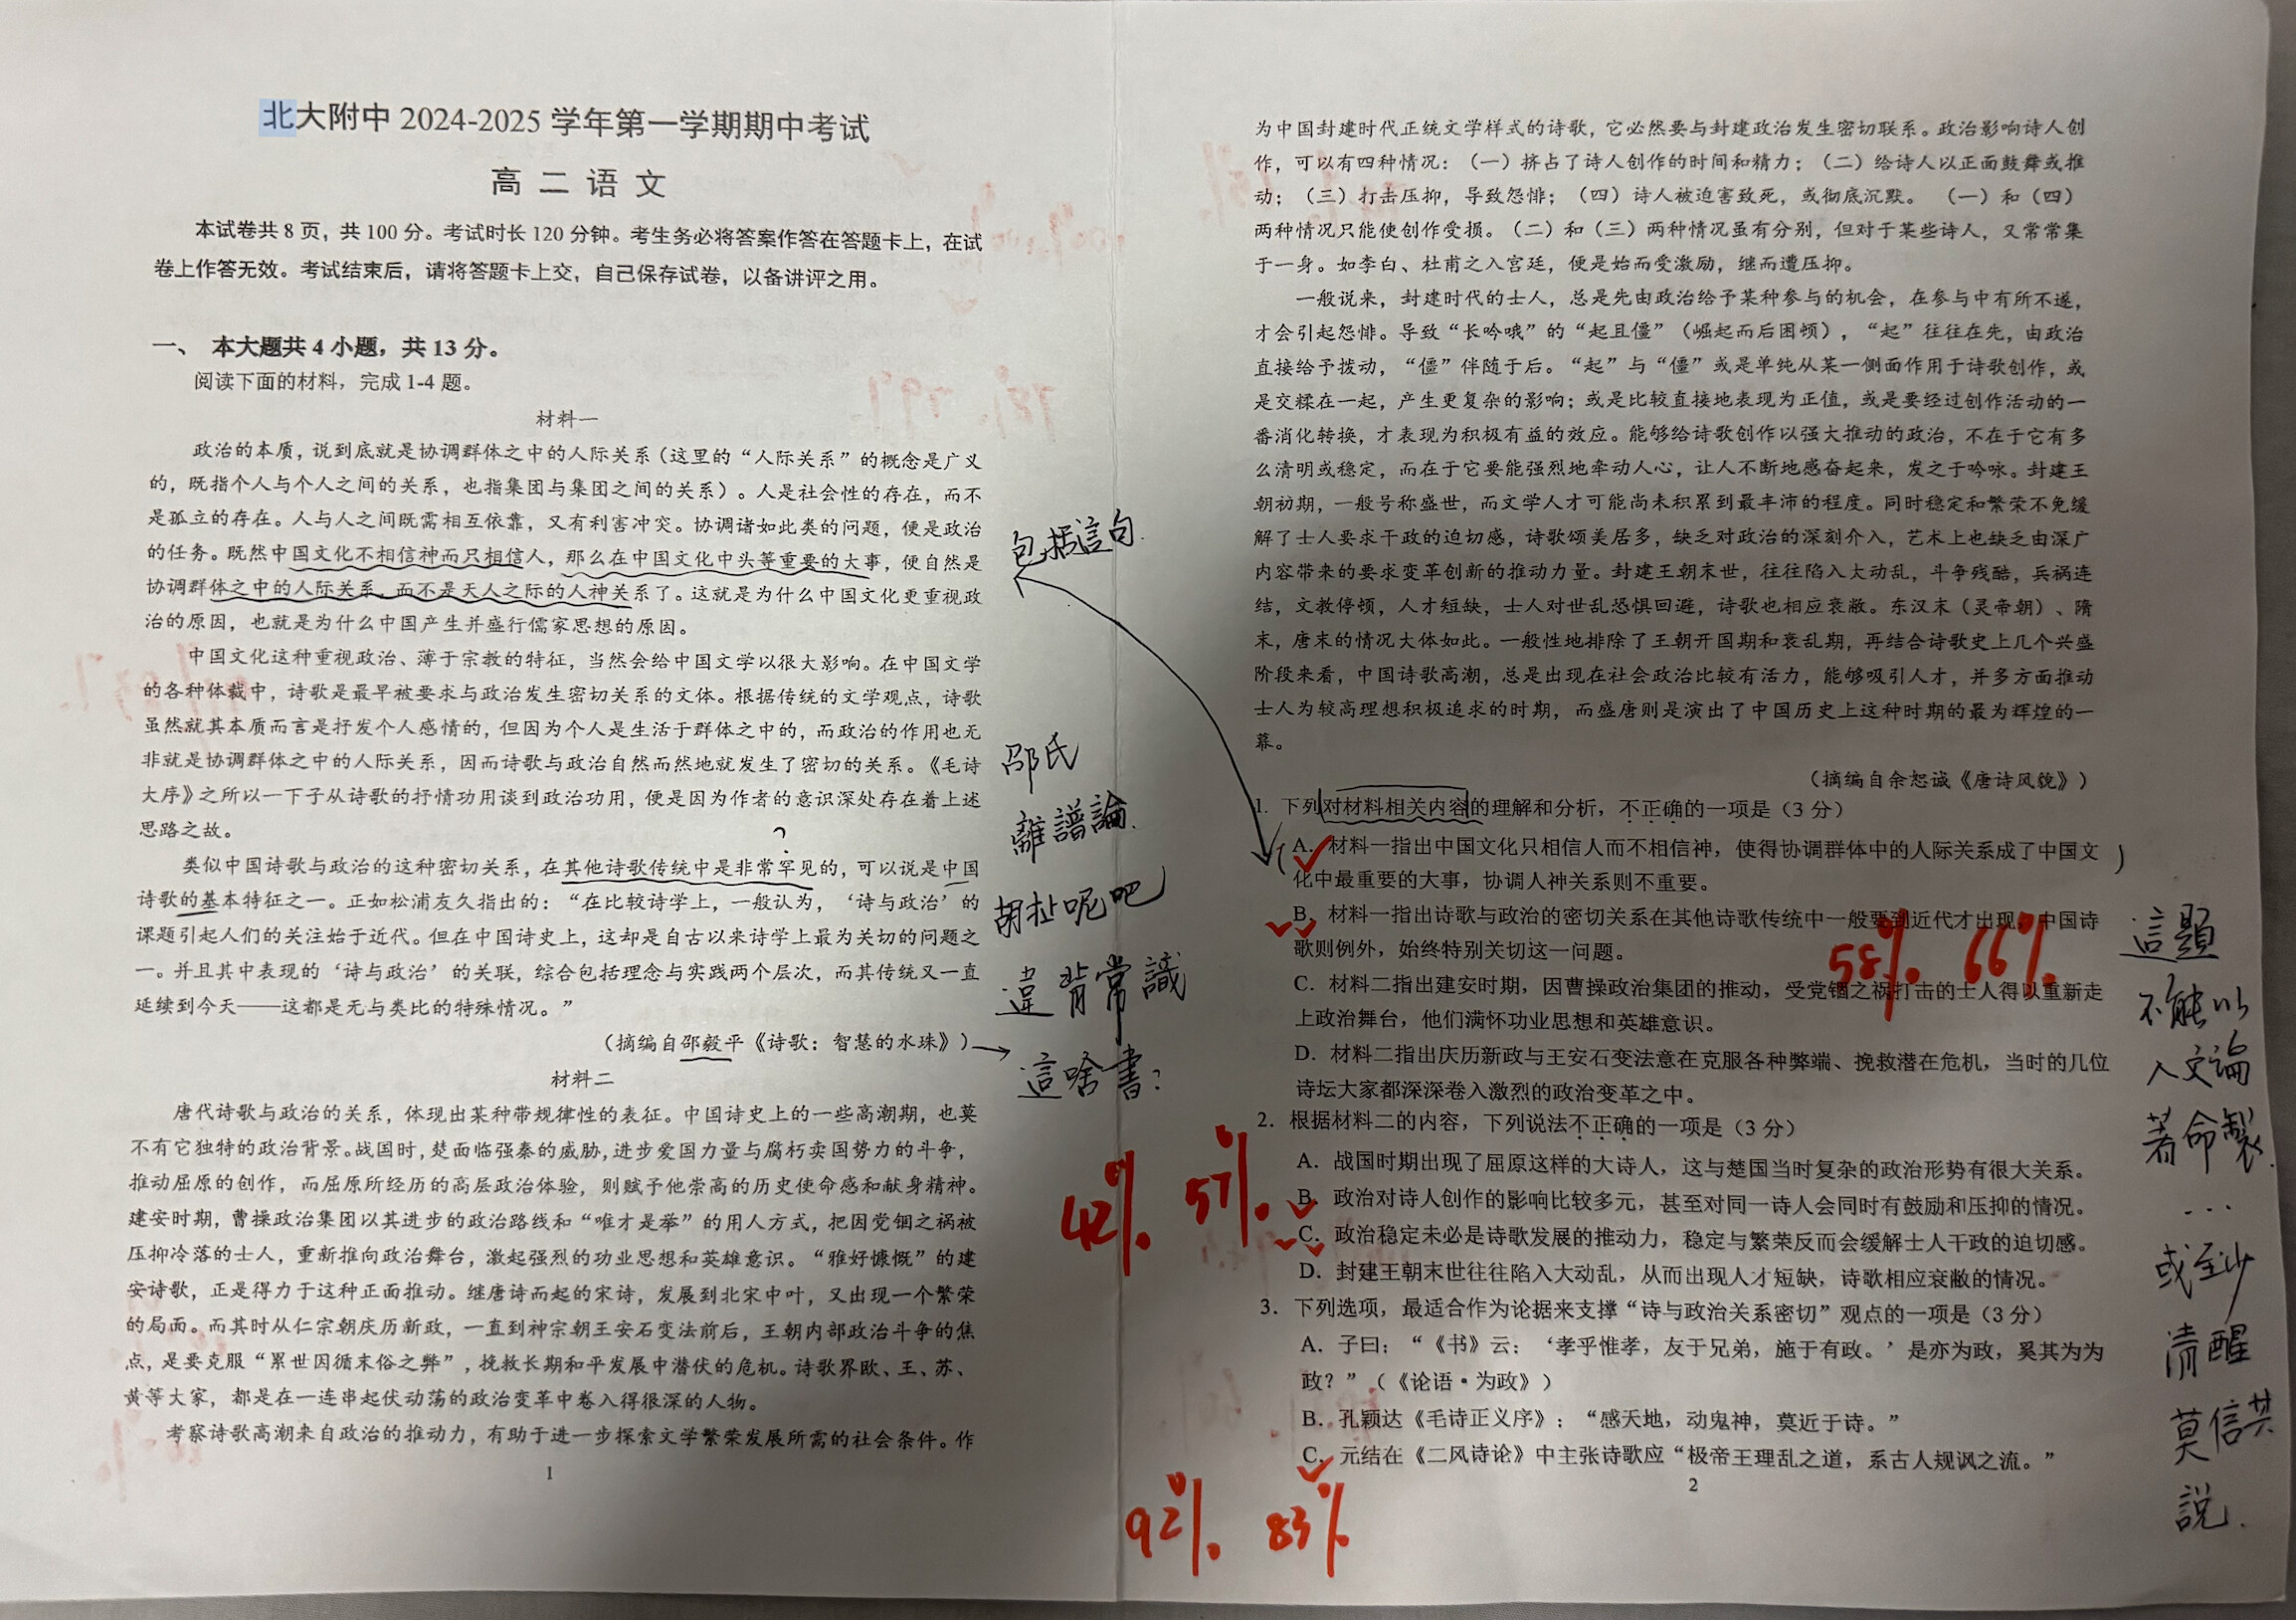 北大附中 2024-2025 学年第一学期期中考试
高 二 语 文
本试卷共 8 页，共 100 分。考试时长 120 分钟。考生务必将答案作答在答题卡上，在试
卷上作答无效。考试结束后，请将答题卡上交，自己保存试卷，以备讲评之用。
一、 本大题共 4 小题，共 13 分。
阅读下面的材料，完成 1-4 题。
材料一
政治的本质，说到底就是协调群体之中的人际关系（这里的“人际关系”的概念是广义
的，既指个人与个人之间的关系，也指集团与集团之间的关系）。人是社会性的存在，而不
是孤立的存在。人与人之间既需相互依靠，又有利害冲突。协调诸如此类的问题，便是政治
的任务。既然中国文化不相信神而只相信人，那么在中国文化中头等重要的大事，便自然是
协调群体之中的人际关系，而不是天人之际的人神关系了。这就是为什么中国文化更重视政
治的原因，也就是为什么中国产生并盛行儒家思想的原因。
中国文化这种重视政治、薄于宗教的特征，当然会给中国文学以很大影响。在中国文学
的各种体裁中，诗歌是最早被要求与政治发生密切关系的文体。根据传统的文学观点，诗歌
虽然就其本质而言是抒发个人感情的，但因为个人是生活于群体之中的，而政治的作用也无
非就是协调群体之中的人际关系，因而诗歌与政治自然而然地就发生了密切的关系。《毛诗
大序》之所以一下子从诗歌的抒情功用谈到政治功用，便是因为作者的意识深处存在着上述
思路之故。
?
类似中国诗歌与政治的这种密切关系，在其他诗歌传统中是非常罕见的，可以说是中国
诗歌的基本特征之一。正如松浦友久指出的：“在比较诗学上，一般认为，‘诗与政治’的
课题引起人们的关注始于近代。但在中国诗史上，这却是自古以来诗学上最为关切的问题之
一。并且其中表现的‘诗与政治’的关联，综合包括理念与实践两个层次，而其传统又一直
延续到今天——这都是无与类比的特殊情况。”
（摘编自邵毅平《诗歌：智慧的水珠》）
材料二
唐代诗歌与政治的关系，体现出某种带规律性的表征。中国诗史上的一些高潮期，也莫
不有它独特的政治背景。战国时，楚面临强秦的威胁，进步爱国力量与腐朽卖国势力的斗争，
推动屈原的创作，而屈原所经历的高层政治体验，则赋予他崇高的历史使命感和献身精神。
建安时期，曹操政治集团以其进步的政治路线和“唯才是举”的用人方式，把因党锢之祸被
压抑冷落的士人，重新推向政治舞台，激起强烈的功业思想和英雄意识。“雅好慷慨”的建
安诗歌，正是得力于这种正面推动。继唐诗而起的宋诗，发展到北宋中叶，又出现一个繁荣
的局面。而其时从仁宗朝庆历新政，一直到神宗朝王安石变法前后，王朝内部政治斗争的焦
点，是要克服“累世因循末俗之弊”，挽救长期和平发展中潜伏的危机。诗歌界欧、王、苏、
黄等大家，都是在一连串起伏动荡的政治变革中卷入得很深的人物。
考察诗歌高潮来自政治的推动力，有助于进一步探索文学繁荣发展所需的社会条件。作
1
包括這句
邵氏
離譜論.
胡扯呢吧
違背常識
這啥書?
为中国封建时代正统文学样式的诗歌，它必然要与封建政治发生密切联系。政治影响诗人创
作，可以有四种情况：（一）挤占了诗人创作的时间和精力；（二）给诗人以正面鼓舞或推
动；（三）打击压抑，导致怨悱；（四）诗人被迫害致死，或彻底沉默。（一）和（四）
两种情况只能使创作受损。（二）和（三）两种情况虽有分别，但对于某些诗人，又常常集
于一身。如李白、杜甫之入宫廷，便是始而受激励，继而遭压抑。
一般说来，封建时代的士人，总是先由政治给予某种参与的机会，在参与中有所不遂，
才会引起怨悱。导致“长吟哦”的“起且僵”（崛起而后困顿），“起”往往在先，由政治
直接给予拨动，“僵”伴随于后。“起”与“僵”或是单纯从某一侧面作用于诗歌创作，或
是交糅在一起，产生更复杂的影响；或是比较直接地表现为正值，或是要经过创作活动的一
番消化转换，才表现为积极有益的效应。能够给诗歌创作以强大推动的政治，不在于它有多
么清明或稳定，而在于它要能强烈地牵动人心，让人不断地感奋起来，发之于吟咏。封建王
朝初期，一般号称盛世，而文学人才可能尚未积累到最丰沛的程度。同时稳定和繁荣不免缓
解了士人要求干政的迫切感，诗歌颂美居多，缺乏对政治的深刻介入，艺术上也缺乏由深广
内容带来的要求变革创新的推动力量。封建王朝末世，往往陷入大动乱，斗争残酷，兵祸连
结，文教停顿，人才短缺，士人对世乱恐惧回避，诗歌也相应衰敝。东汉末（灵帝朝）、隋
末，唐末的情况大体如此。一般性地排除了王朝开国期和衰乱期，再结合诗歌史上几个兴盛
阶段来看，中国诗歌高潮，总是出现在社会政治比较有活力，能够吸引人才，并多方面推动
士人为较高理想积极追求的时期，而盛唐则是演出了中国历史上这种时期的最为辉煌的一
幕。
（摘编自余恕诚《唐诗风貌》）
1. 下列对材料相关内容的理解和分析，不正确的一项是（3 分）
A. 材料一指出中国文化只相信人而不相信神，使得协调群体中的人际关系成了中国文
化中最重要的大事，协调人神关系则不重要。
B. 材料一指出诗歌与政治的密切关系在其他诗歌传统中一般要到近代才出现，中国诗
歌则例外，始终特别关切这一问题。
58%. 66%.
C. 材料二指出建安时期，因曹操政治集团的推动，受党锢之祸打击的士人得以重新走
上政治舞台，他们满怀功业思想和英雄意识。
D. 材料二指出庆历新政与王安石变法意在克服各种弊端、挽救潜在危机，当时的几位
诗坛大家都深深卷入激烈的政治变革之中。
2. 根据材料二的内容，下列说法不正确的一项是（3 分）
A. 战国时期出现了屈原这样的大诗人，这与楚国当时复杂的政治形势有很大关系。
B. 政治对诗人创作的影响比较多元，甚至对同一诗人会同时有鼓励和压抑的情况。
C. 政治稳定未必是诗歌发展的推动力，稳定与繁荣反而会缓解士人干政的迫切感。
D. 封建王朝末世往往陷入大动乱，从而出现人才短缺，诗歌相应衰敝的情况。
42%. 57%.
3. 下列选项，最适合作为论据来支撑“诗与政治关系密切”观点的一项是（3 分）
A. 子曰：“《书》云：‘孝乎惟孝，友于兄弟，施于有政。’是亦为政，奚其为为
政？”（《论语·为政》）
B. 孔颖达《毛诗正义序》：“感天地，动鬼神，莫近于诗。”
C. 元结在《二风诗论》中主张诗歌应“极帝王理乱之道，系古人规讽之流。”
92%. 83%.
2
這題
不能以
人文論
著命製.
...
或至少
清醒
莫信其
説.